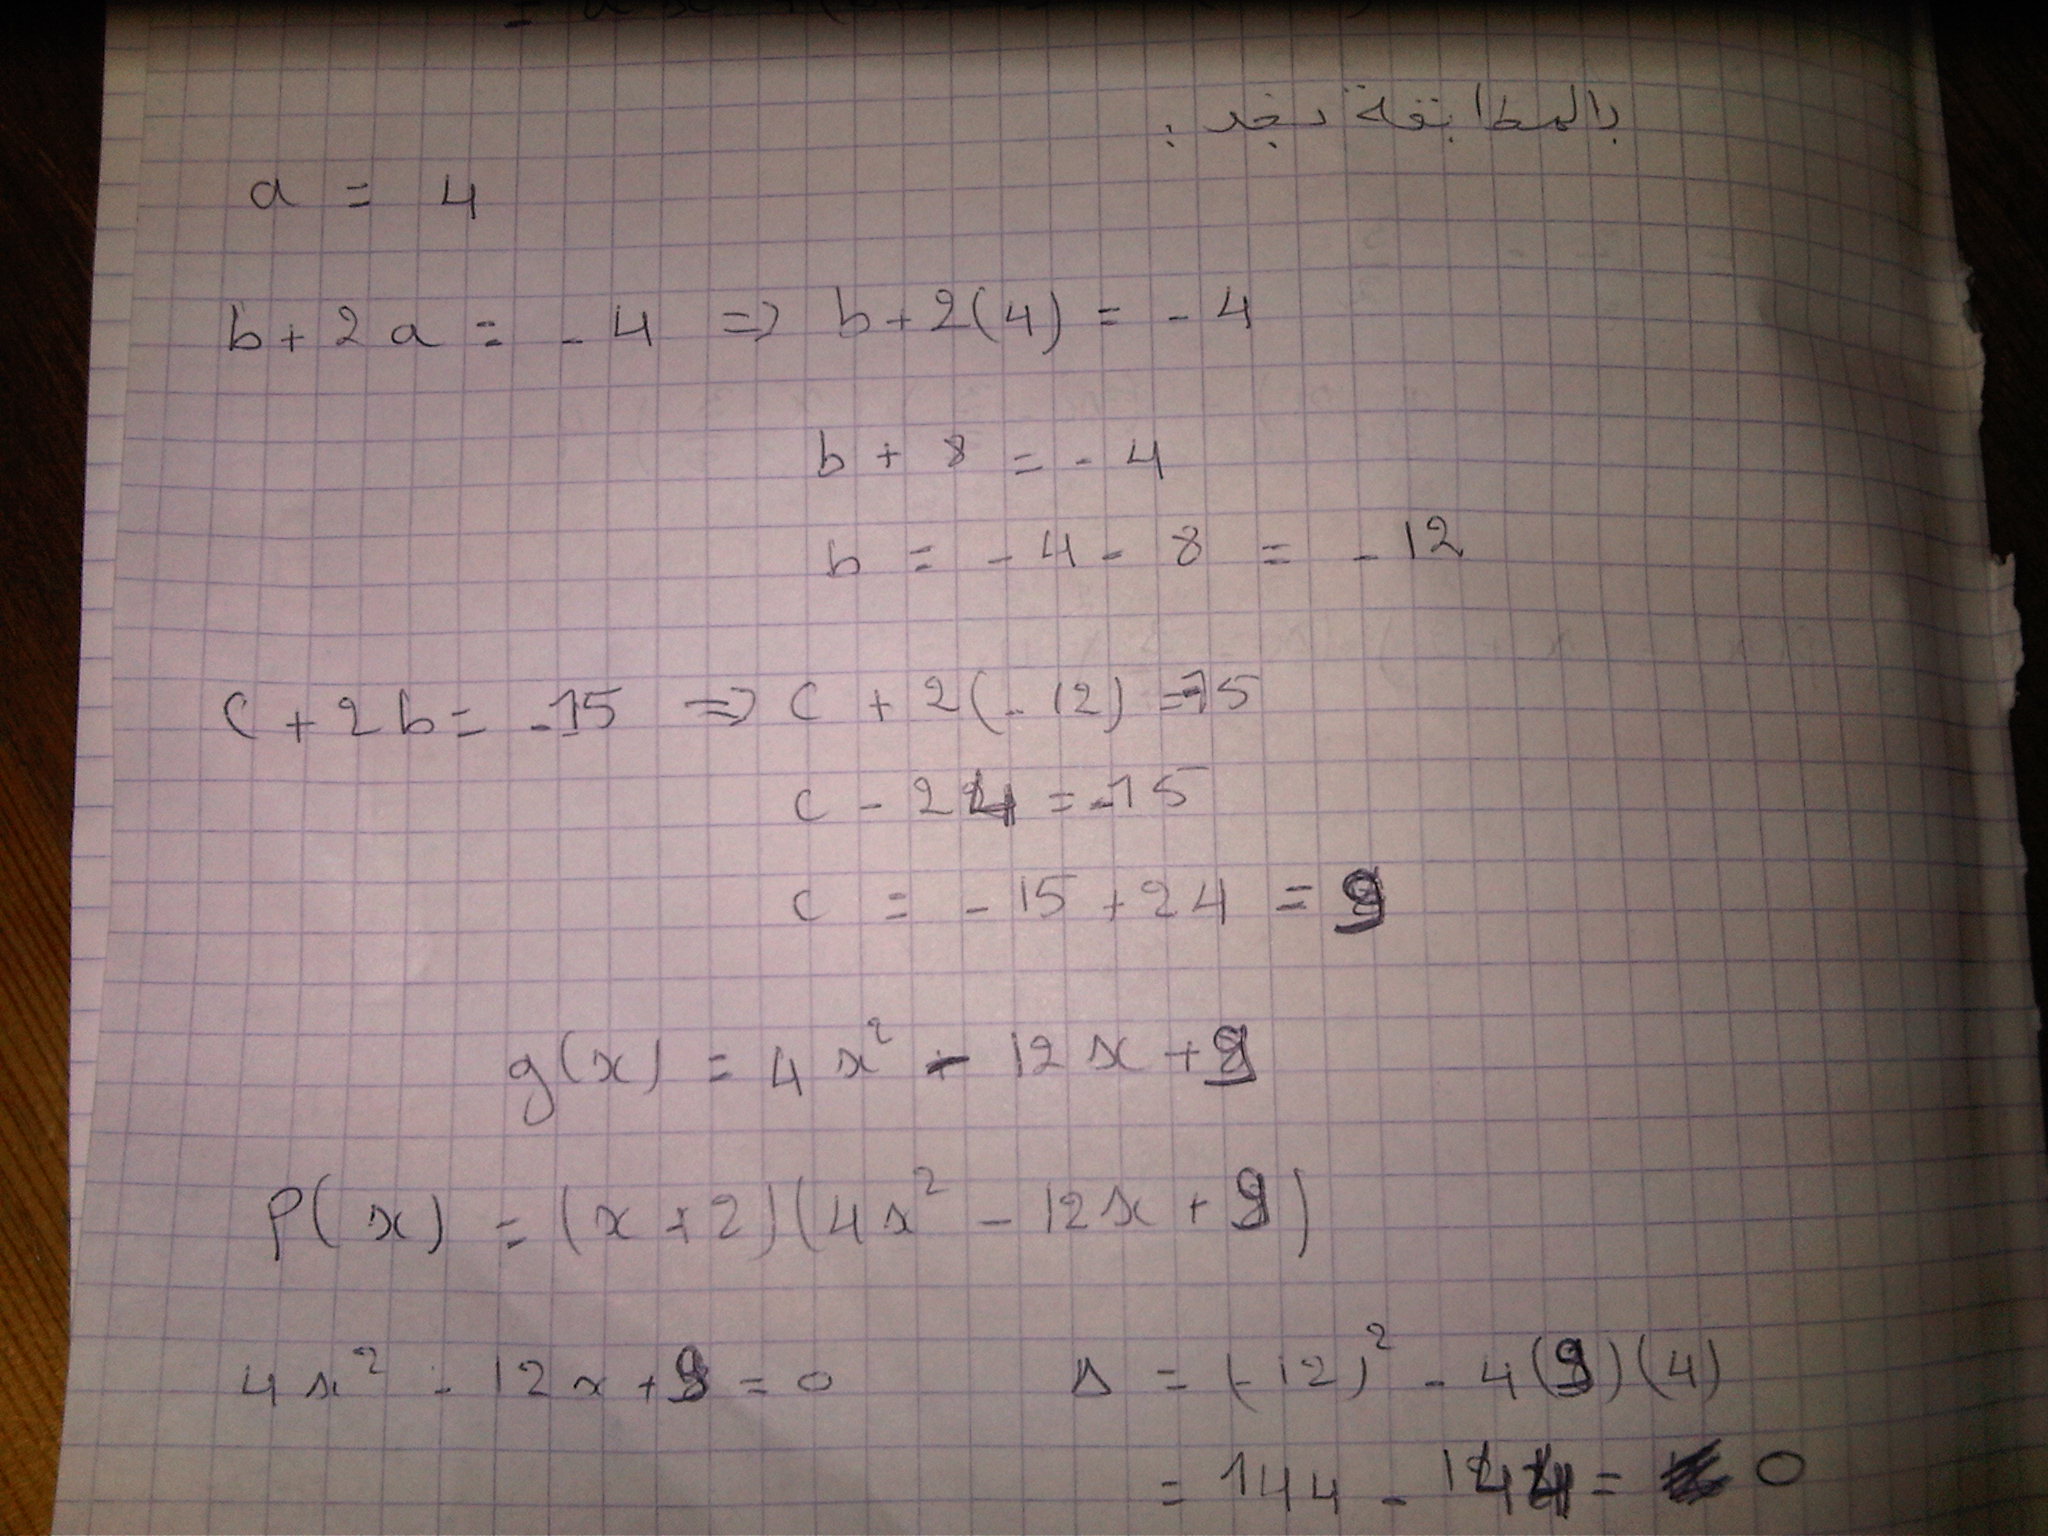 بالمطابقة نجد :
a = 4
b + 2a = - 4 => b + 2(4) = - 4
b + 8 = - 4
b = - 4 - 8 = - 12
c + 2b = - 15 => c + 2(- 12) = -15
c - 24 = - 15
c = - 15 + 24 = 9
g(x) = 4x² - 12x + 9
P(x) = (x + 2)(4x² - 12x + 9)
4x² - 12x + 9 = 0 Δ = (- 12)² - 4(9)(4)
= 144 - 144 = 0